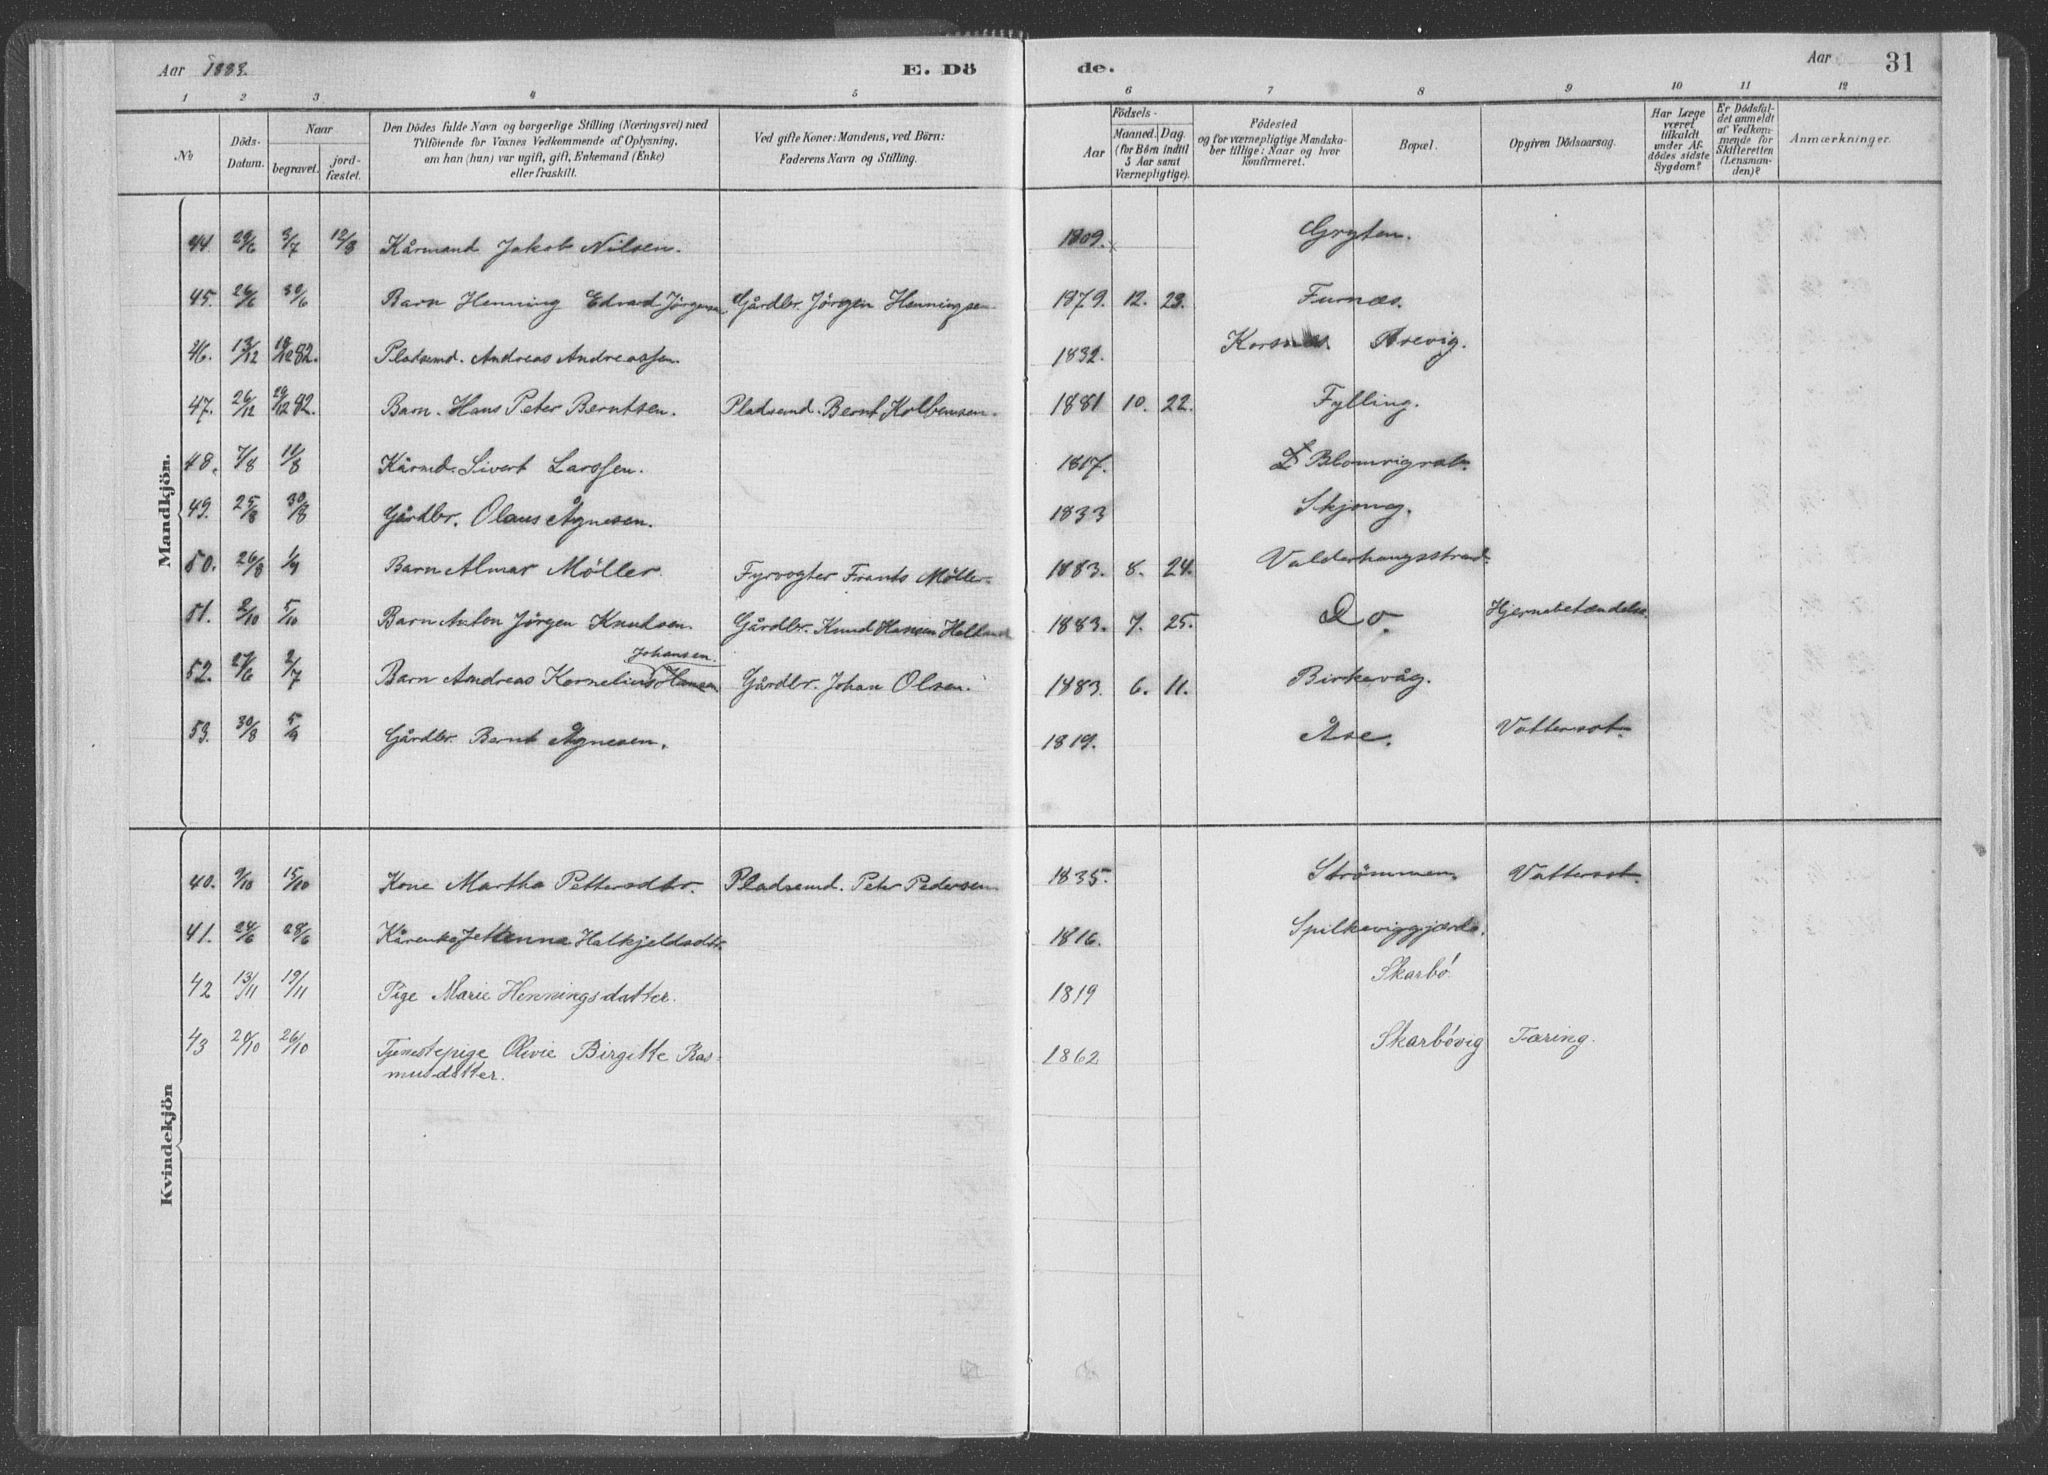 Aar 1883. E. Dö de. Aar 31
1 2 3 4 5 6 7 8 9 10 11 12
No Döds-Datum. Naar begravet. jord-fæstet. Den Dödes fulde Navn og borgerlige Stilling (Næringsvei) med Tilföiende for Voxnes Vedkommende af Oplysning, om han (hun) var ugift, gift, Enkemand (Enke) eller fraskilt. Ved gifte Koner: Mandens, ved Börn: Faderens Navn og Stilling. Aar Födsels- Maaned. Dag. (for Börn indtil 5 Aar samt Værnepligtige). Födested og for værnepligtige Mandska-ber tillige: Naar og hvor konfirmeret. Bopæl. Opgiven Dödsaarsag. Har Læge været tilkaldt under Af-dödes sidste Sygdom? Er Dödsfal-det anmeldt af Vedkom-mende for Skifteretten (Lensman-den)? Anmærkninger.
Mandkjön.
44. 29/6 3/7 12/8 Kårmand Jakob Nilsen. 1809. Gryten.
45. 26/6 30/6 Barn Henning Edvard Jörgensen. Gårdbr. Jörgen Henningsen 1879. 12. 23. Furnæs.
46. 13/12 18/12 82. Pladsemd. Andreas Andreassen. 1832. Korsnes. Arevig.
47. 26/12 29/12 82. Barn. Hans Peter Berntsen. Pladsemd. Bernt Kolbensen. 1881 10. 22. Fylling.
48. 7/8 11/8 Kårmd. Sivert Larssen. 1817. Blomvigrab.
49. 25/8 30/8 Gårdbr. Olaus Ågnesen. 1833 Skjong.
50. 26/8 1/9 Barn Almar Möller. Fyrvogter Frants Möller. 1883. 8. 24. Valderhaugsstrand.
51. 2/10 5/10 Barn Anton Jörgen Knudsen. Gårdbr. Knud Hansen 1883. 7. 25. Do. Hjernebetændelse.
Johansen.
52. 27/6 2/7 Barn Andreas Kornelius Hansen Gårdbr. Johan Olsen. 1883. 6. 11. Birkevåg.
53. 30/8 5/9 Gårdbr. Bernt Ågnesen. 1819. Åse. Vattersot.
Kvindekjön
40. 9/10 15/10 Kone Martha Pettersdtr. Pladsemd. Peter Pedersen 1835. Strömmen. Vattersot.
41. 24/6 28/6 Kårenke Halkjeldsdtr. 1816. Spilkeviggjærde.
42 13/11 19/11 Pige Marie Henningsdatter. 1819 Skarbö
43 20/10 26/10 Tjenestepige Olivie Birgitte Ras- 1862 Skarbövig Tæring.
musdatter.